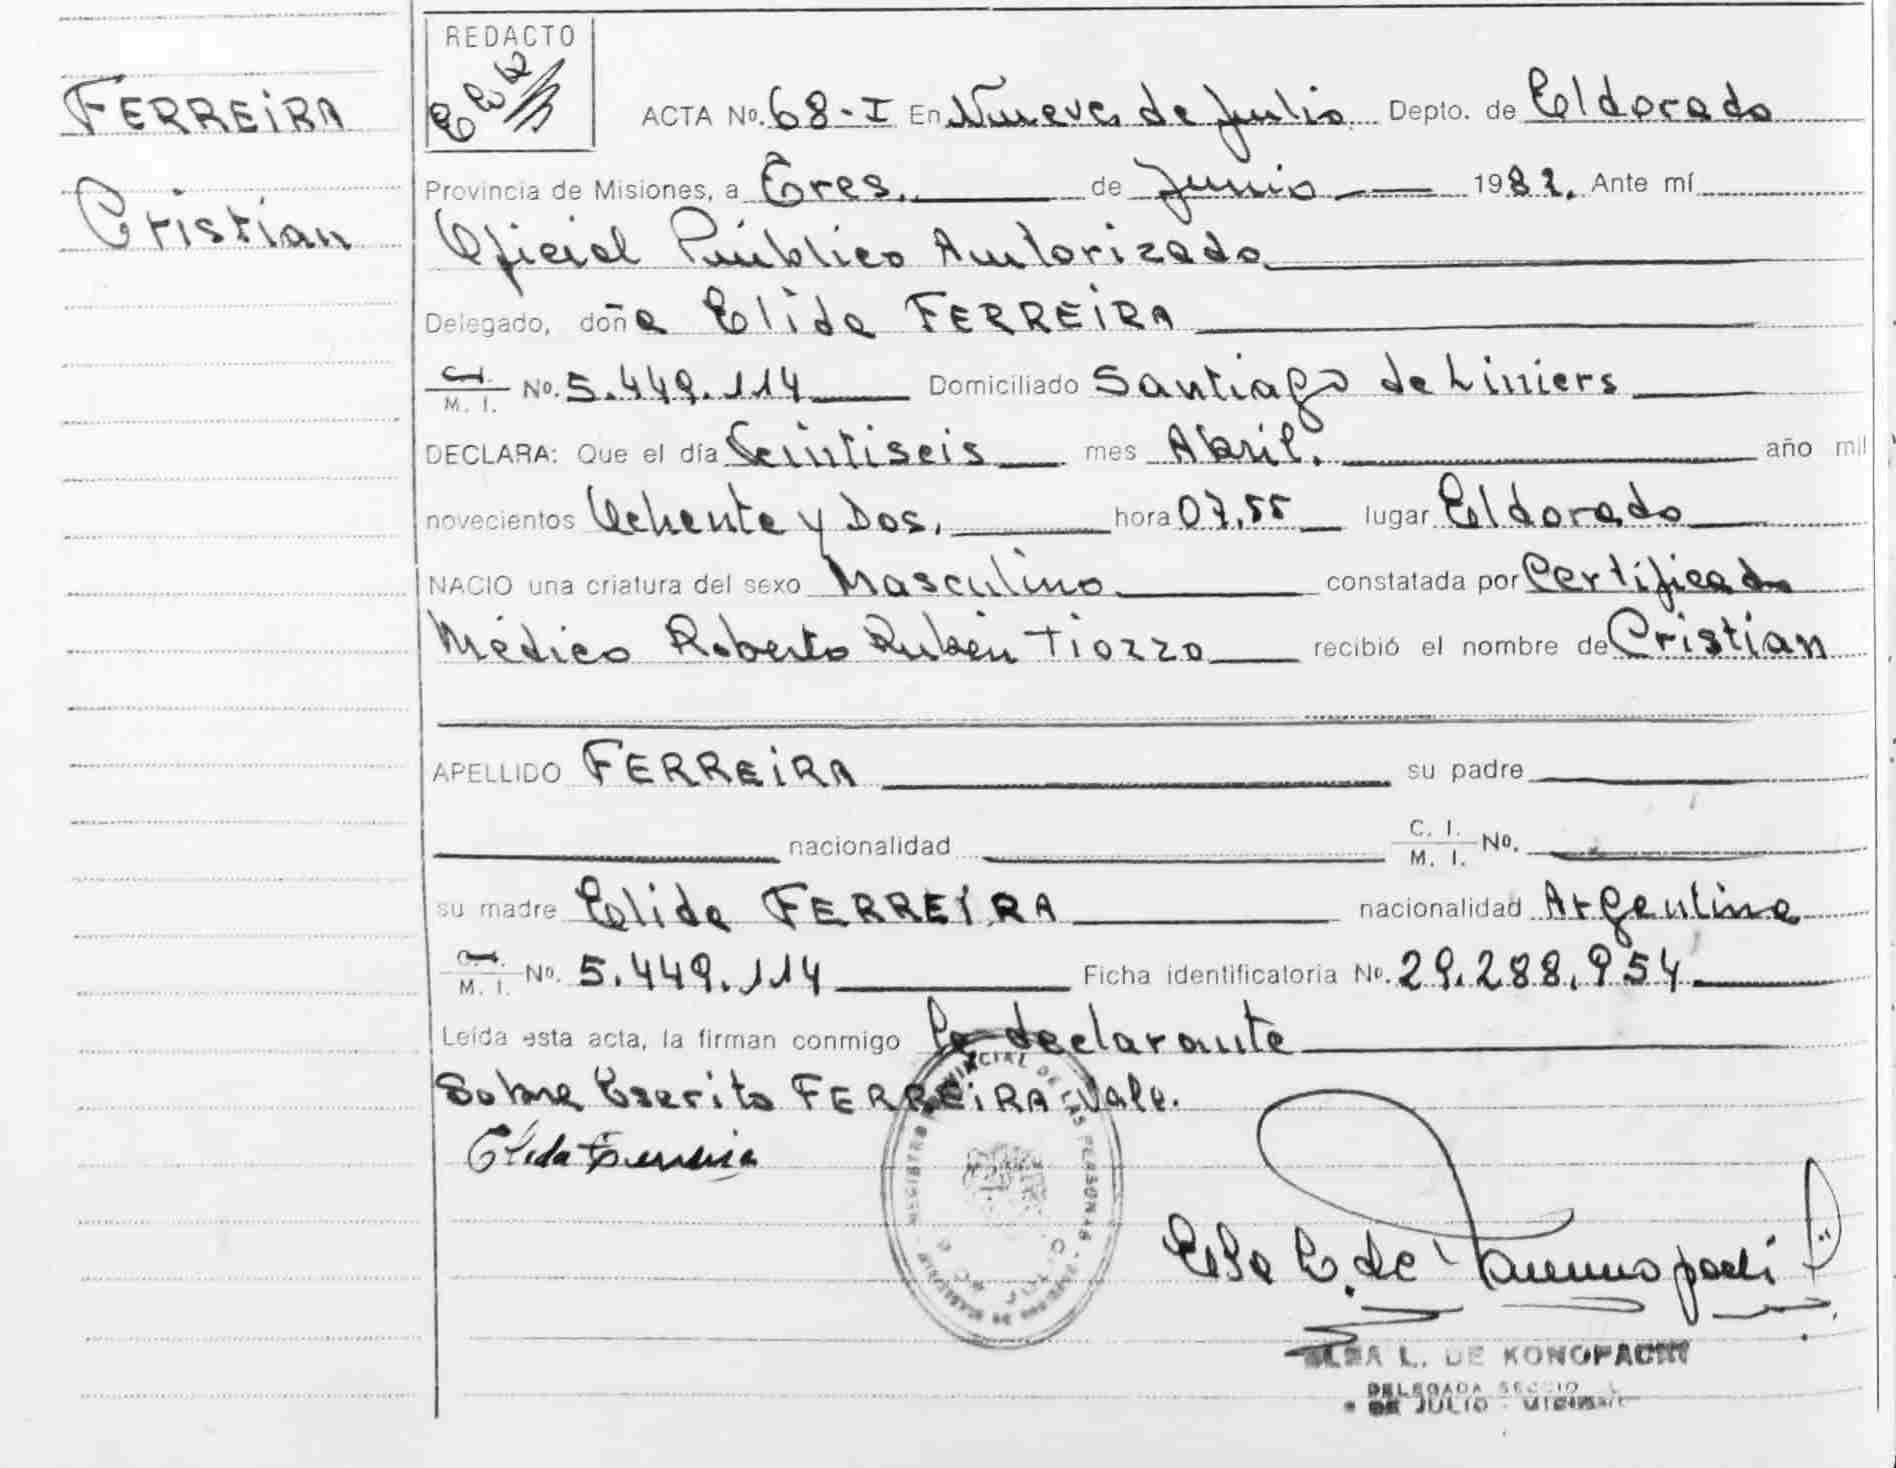 FERREIRA
Cristian
REDACTO
ACTA No. 68-I En Nueve de Julio Depto. de Eldorado
Provincia de Misiones, a Tres. de Junio 1982. Ante mí
Oficial Público Autorizado
Delegado, doña Elida FERREIRA
C.I. M. I. No. 5.449.114 Domiciliado Santiago de Liniers
DECLARA: Que el día Veintiseis mes Abril. año mil
novecientos Ochenta y Dos. hora 07,55 lugar Eldorado
NACIO una criatura del sexo Masculino constatada por Certificado
Médico Roberto Rubén Tiozzo recibió el nombre de Cristian
APELLIDO FERREIRA su padre
nacionalidad C. I. M. I. No.
su madre Elida FERREIRA nacionalidad Argentina
C.I. M. I. No. 5.449.114 Ficha identificatoria No. 29.288.954
Leída esta acta, la firman conmigo la declarante
Sobre Escrito FERREIRA Vale.
Elida Ferreira
REGISTRO PROVINCIAL DE LAS PERSONAS
Elsa L. de Konopacki
ELSA L. DE KONOPACKI
DELEGADA
DE JULIO - MISIONES